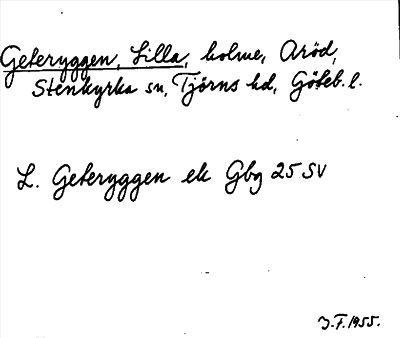 Geteryggen, Lilla, holme, Aröd,
Stenkyrka sn, Tjörns hd, Göteb. l.
L. Geteryggen ek Gbg 25 SV
J.F. 1955.